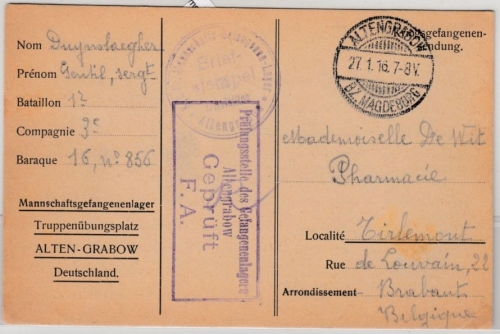 Nom Duynslaegher
Prénom Gentil, sergt
Bataillon 1r
Compagnie 3e
Baraque 16, nº 856
Mannschaftsgefangenenlager
Truppenübungsplatz
ALTEN-GRABOW
Deutschland.
Brief-
stempel
Prüfungsstelle des Gefangenenlagers
Altengrabow
Geprüft
F. A.
gefangenen-
sendung.
ALTENGRABOW
27.1.16.7-8V.
BZ. MAGDEBURG
Mademoiselle De Wit
Pharmacie
Localité Tirlemont
Rue de Louvain, 22
Arrondissement Brabant
Belgique